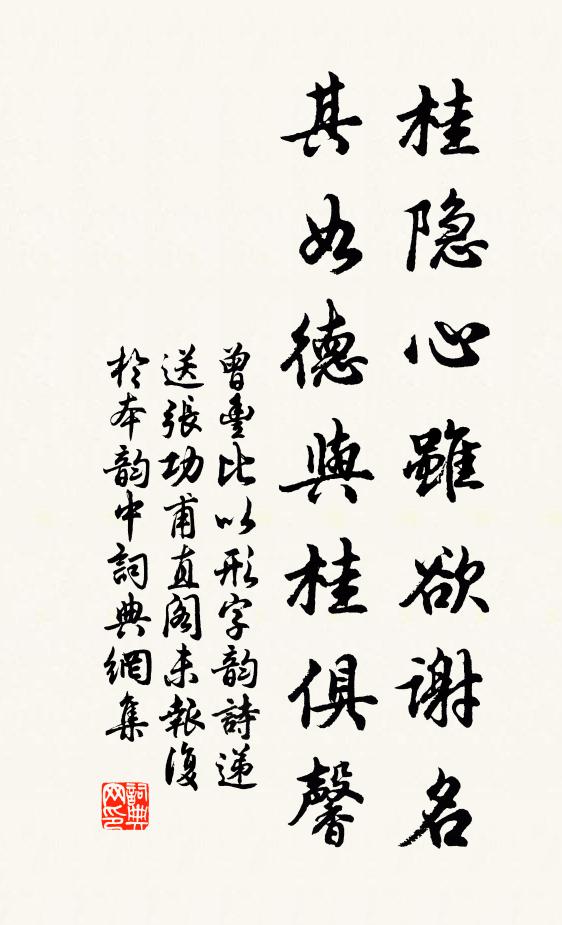 桂隐心雖欲谢名
其如德與桂俱馨
曾豐比以形字韵詩递
送張功甫直阁未報復
於本韵中詞典網集
詞典网印